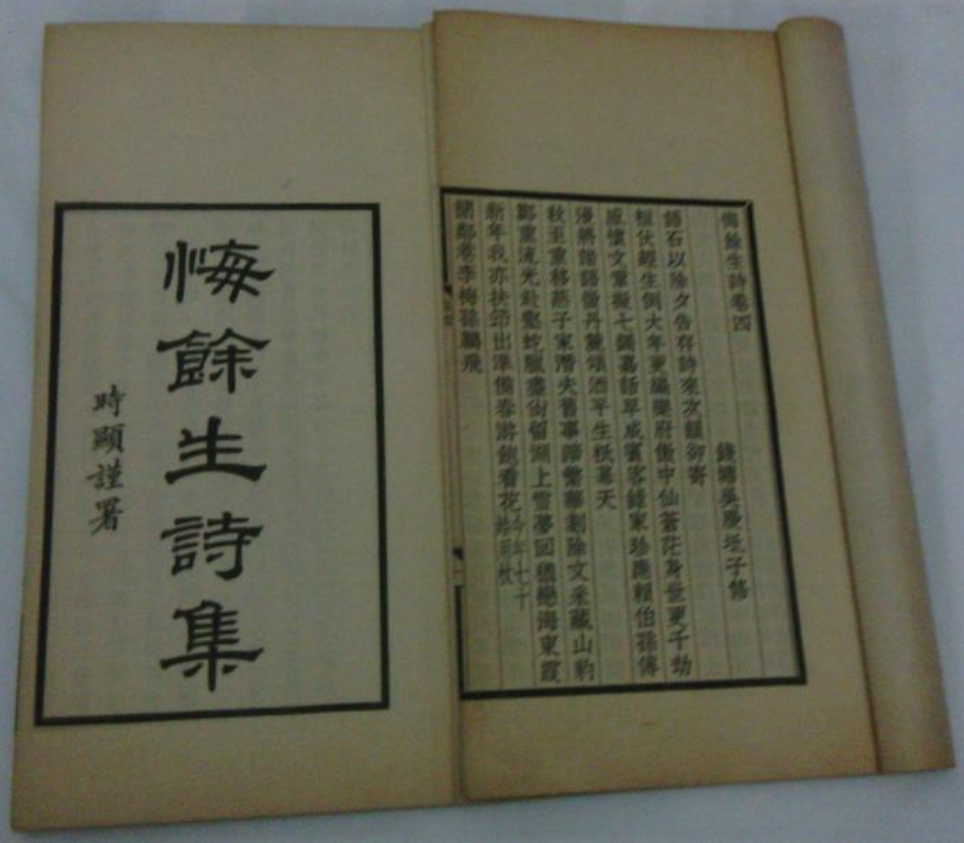 悔餘生詩集
時顯謹署
悔餘生詩卷四
錢塘吳慶坻子修
語石以除夕告存詩來次韻卻寄
伏經生倒大年更編樂府中仙蒼茫身世更千劫
感懷文章擬七嘉話早成賓客錄家珍應賴伯孫傳
漫將隱語丹頌酒平生祇幕天
秋至重移燕子家潛夫舊事繁華剗除文采藏山豹
鄭重流光赴壑蛇臘盡尚留湖上雪夢回猶戀海東霞
新年我亦扶筇出準備春游飽看花今年七十
鄰巷李梅孫鵬飛